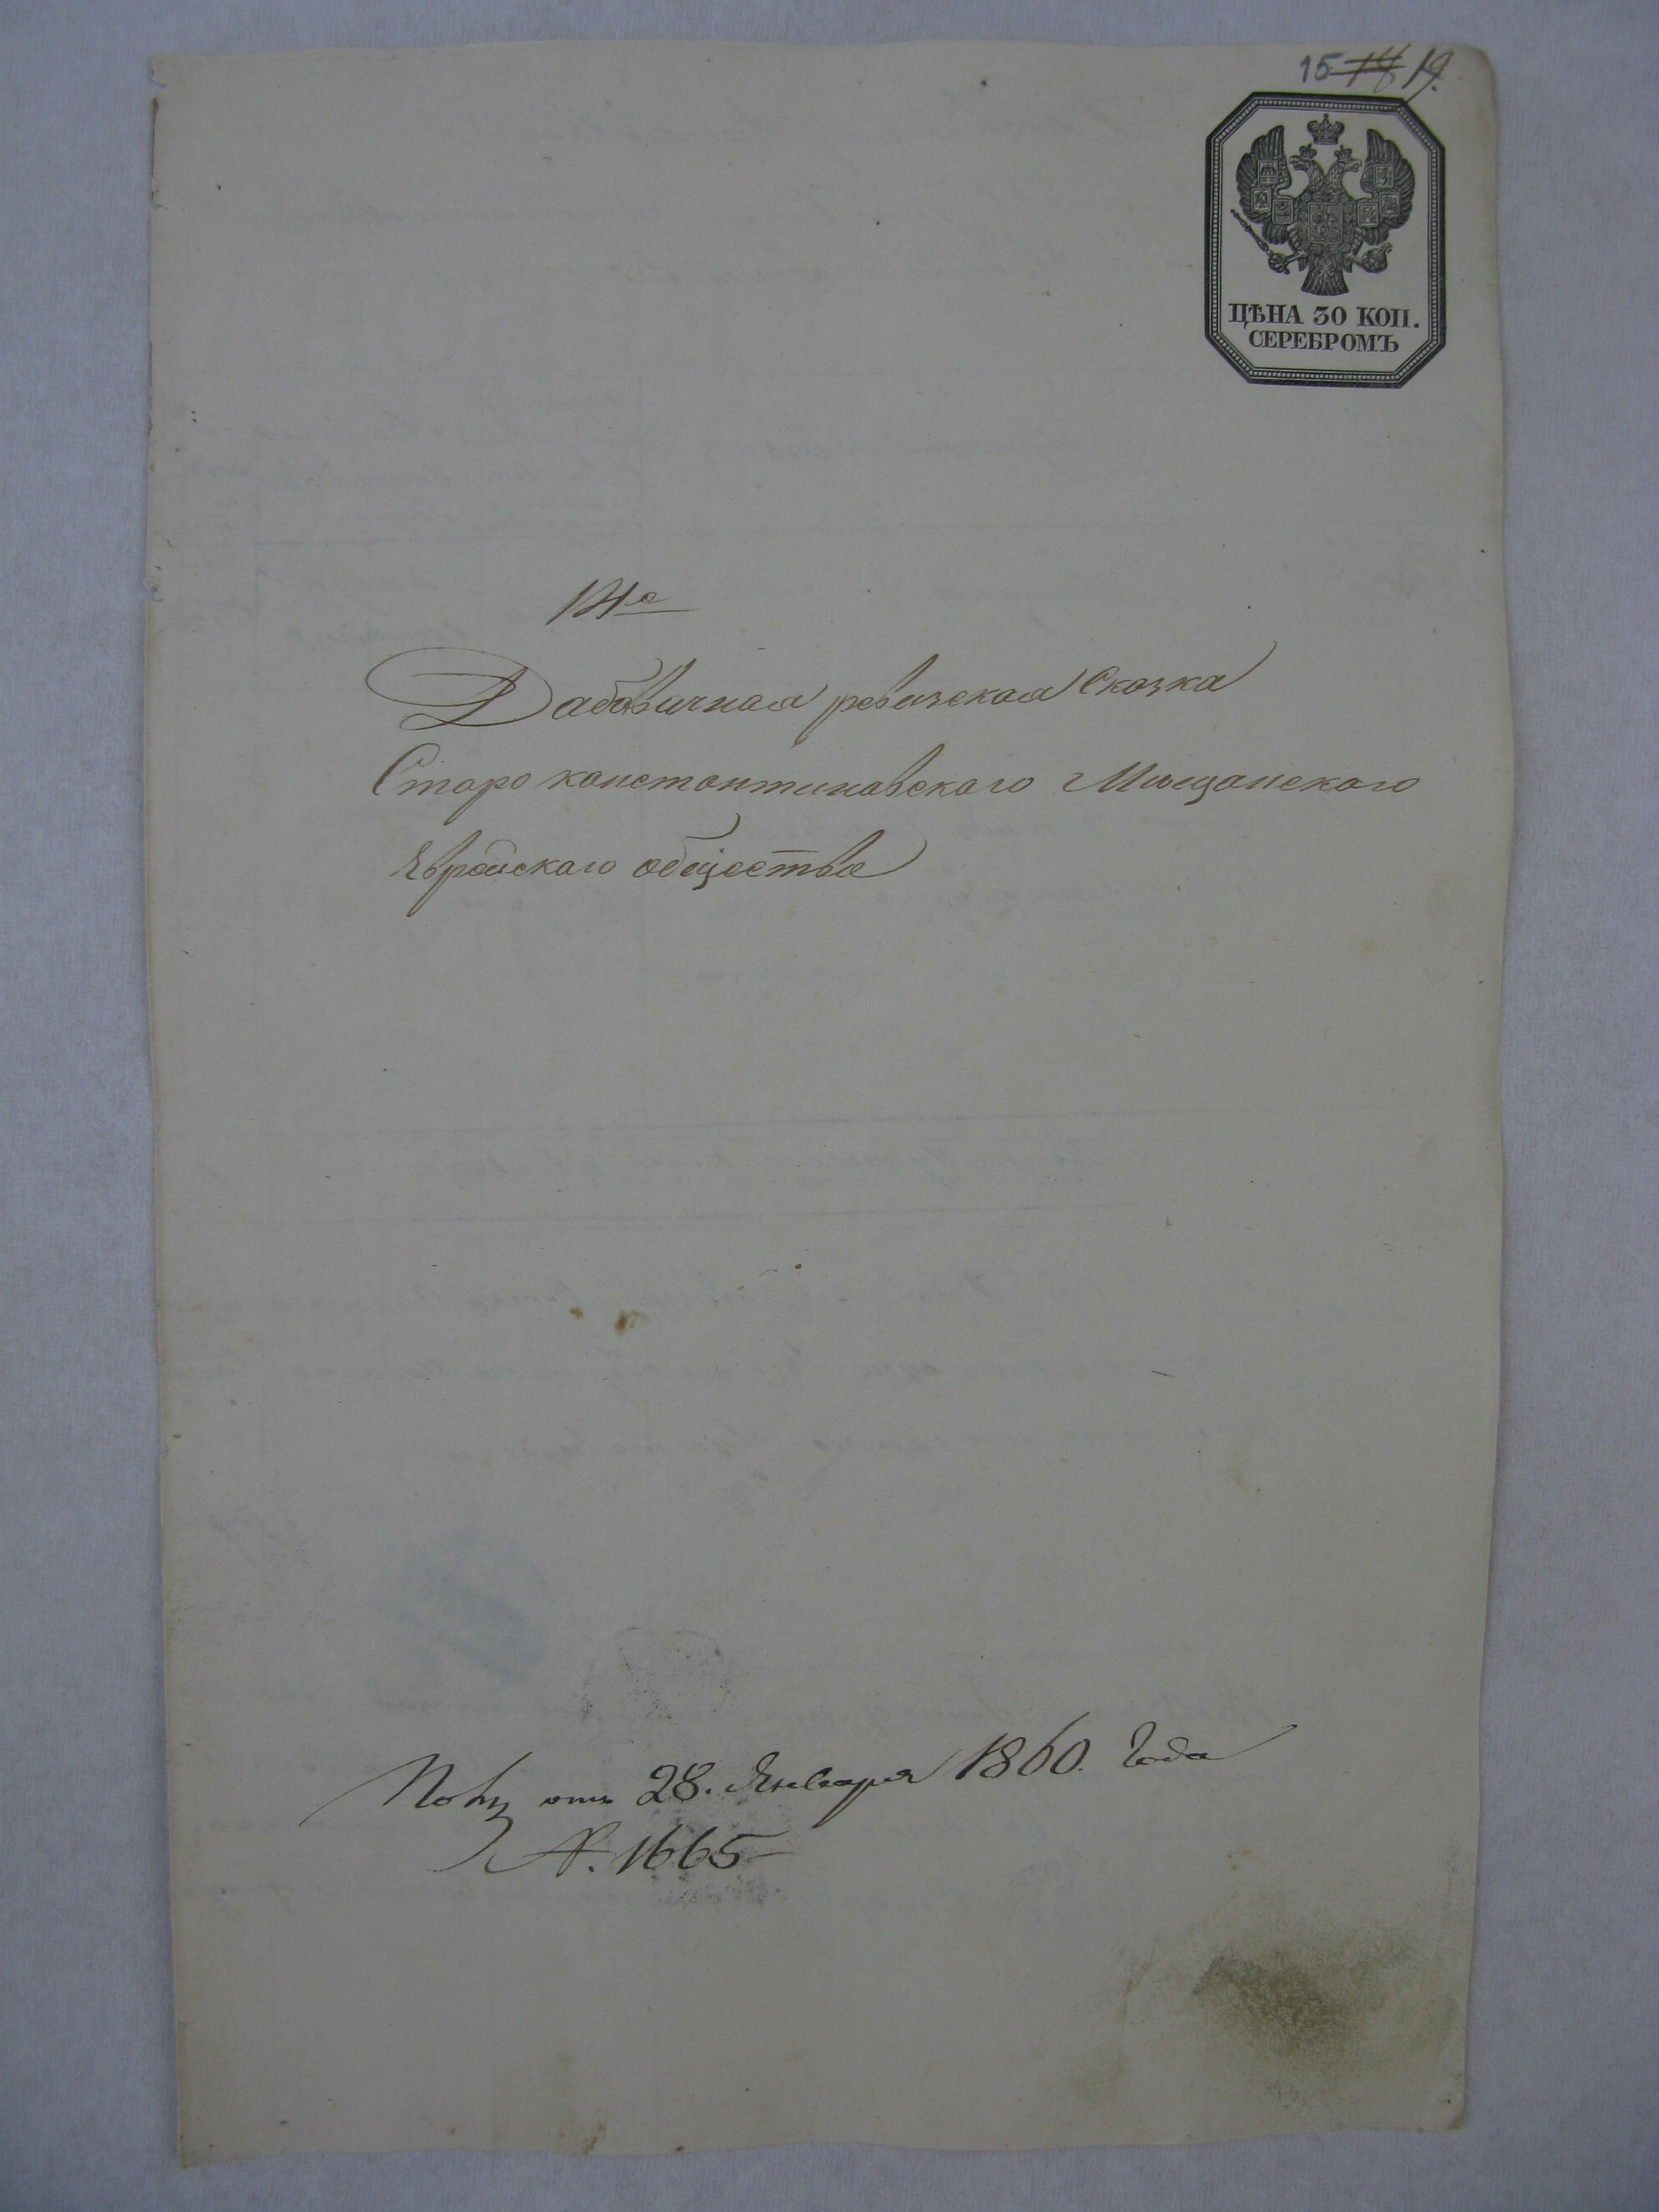 15 14 19.
ЦѢНА 30 КОП.
СЕРЕБРОМЪ
14е
Дабавачная ревизская Сказка
Старо константиновскаго Мищанскаго
Еврейскаго общества
отъ 28. Января 1860. Года
№. 1665